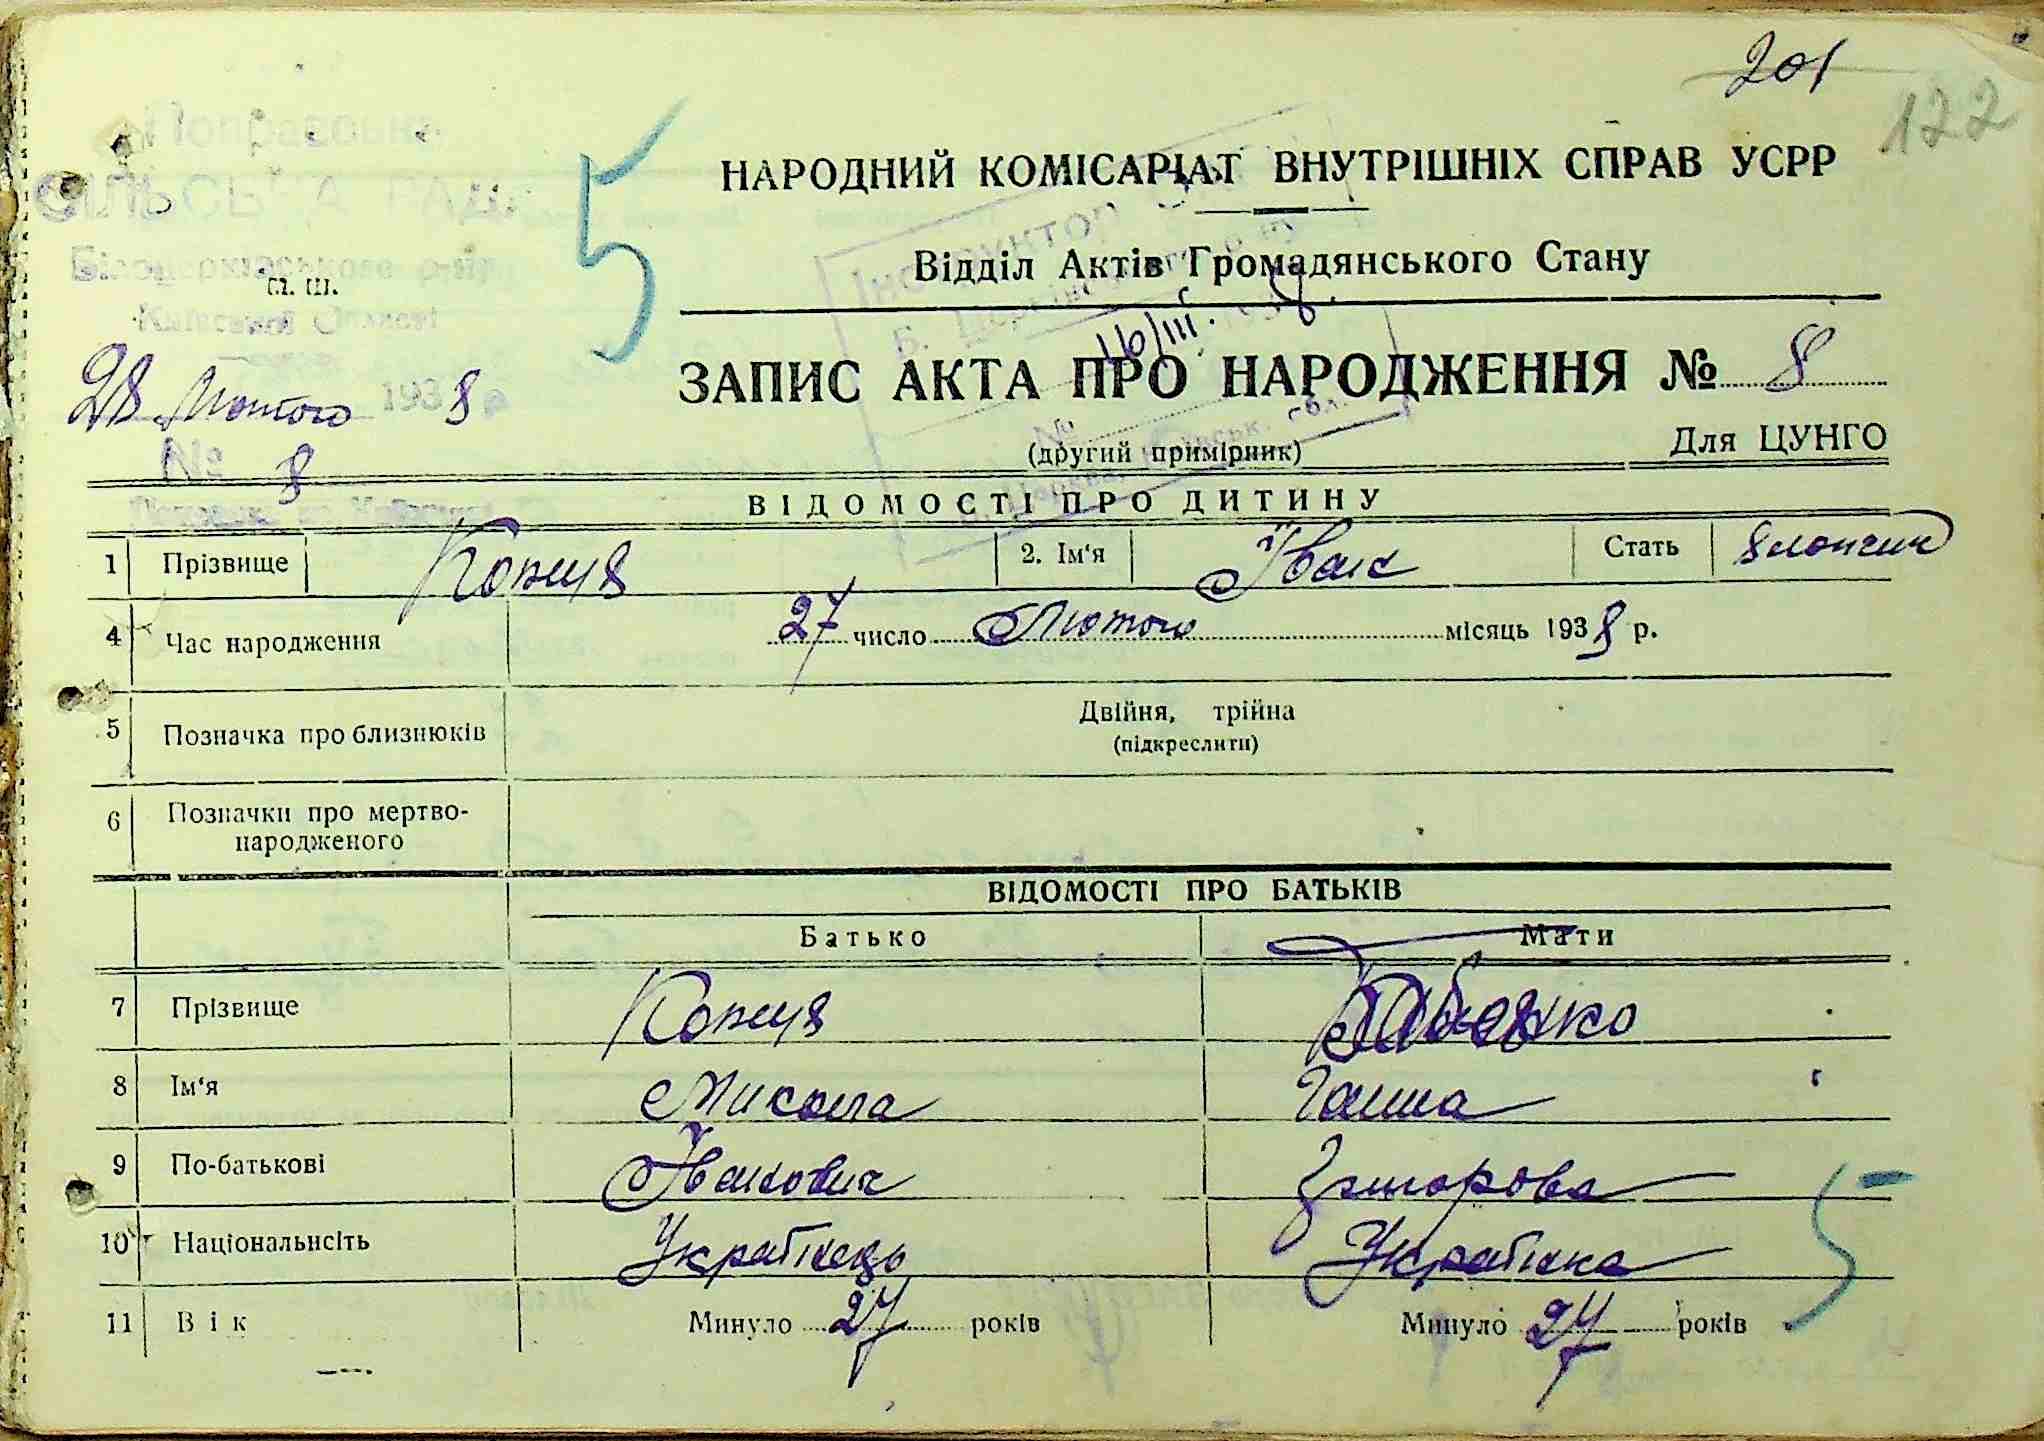 201
122
5
НАРОДНИЙ КОМІСАРІАТ ВНУТРІШНІХ СПРАВ УСРР
СІЛЬСЬКА РАДА
Відділ Актів Громадянського Стану
м. ш.
Київської Області
16/III
28 Лютого 1938 р
№ 8
ЗАПИС АКТА ПРО НАРОДЖЕННЯ № 8
(другий примірник)
Для ЦУНГО
ВІДОМОСТІ ПРО ДИТИНУ
1 Прізвище Копця 2. Ім‘я Іван Стать хлопчик
4 Час народження 27 число Лютого місяць 1938 р.
5 Позначка про близнюків Двійня, трійна
(підкреслити)
6 Позначки про мертво-
народженого
ВІДОМОСТІ ПРО БАТЬКІВ
Батько Мати
7 Прізвище Копця
8 Ім‘я Микола Ганна
9 По-батькові Іванович
10 Національнсіть Українець Українка
11 Вік Минуло 27 років Минуло 27 років
5